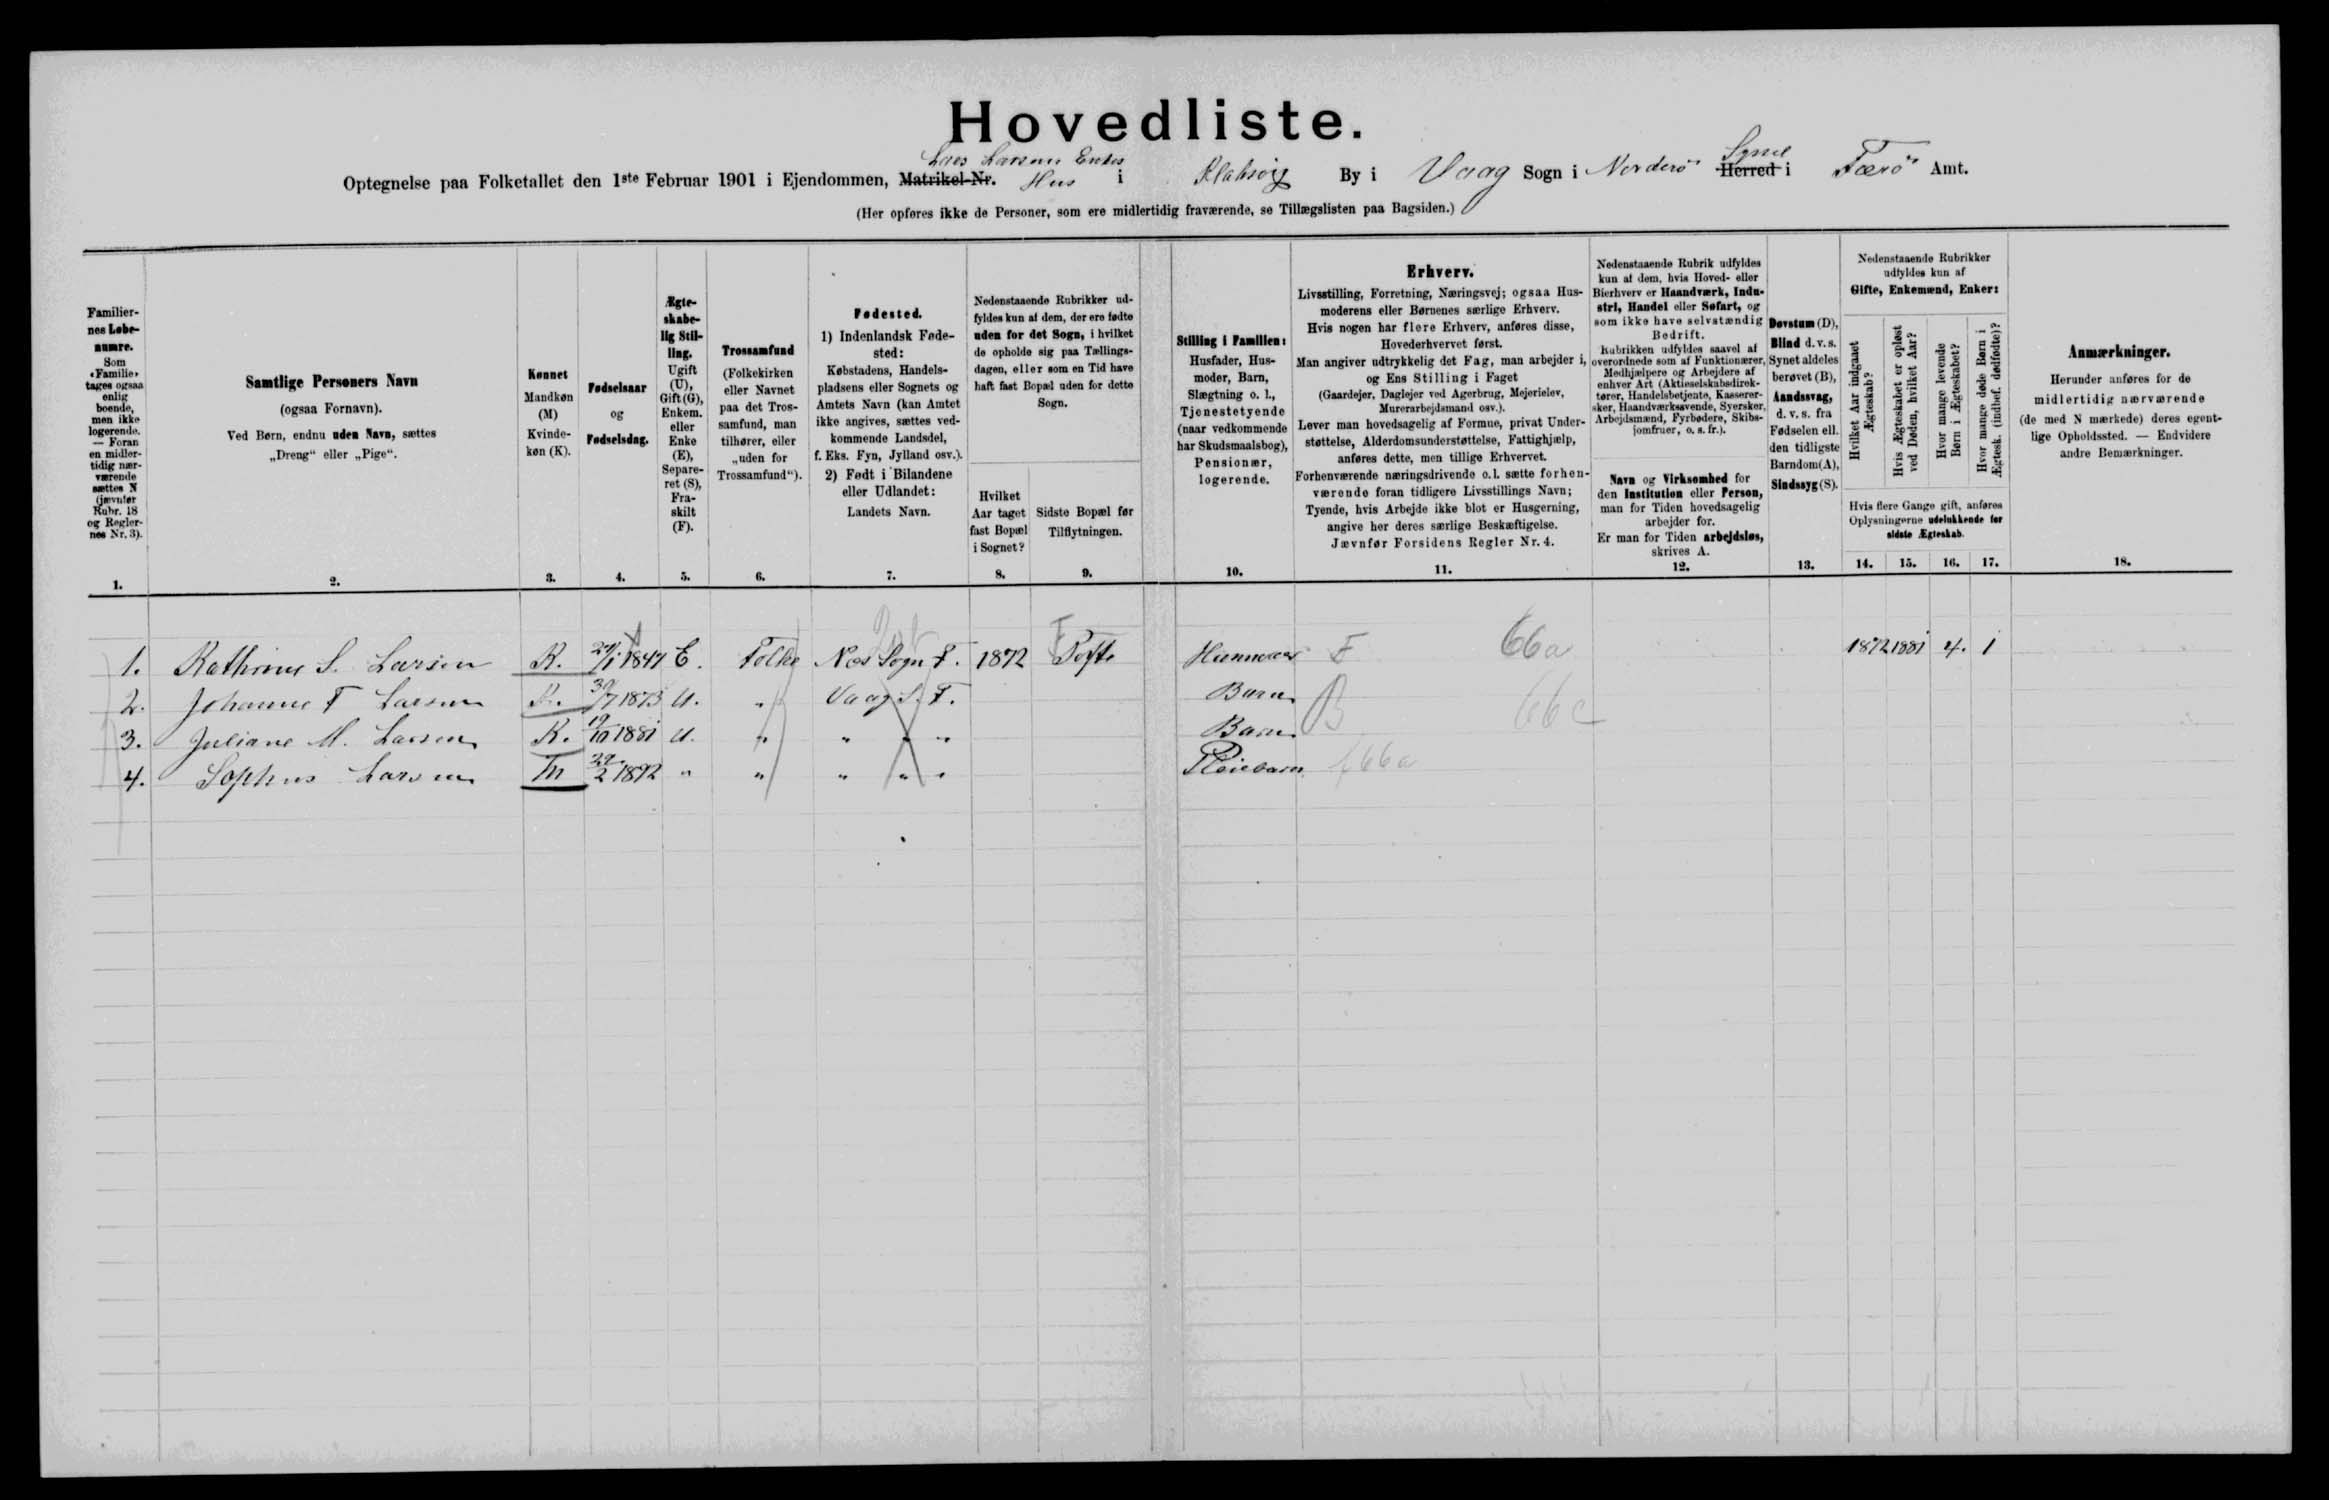 Hovedliste.
Lars Larsens Enkes
Optegnelse paa Folketallet den 1ste Februar 1901 i Ejendommen, Matrikel-Nr. Hus i Klaksvig By i Vaag Sogn i Norderø Herred i Færø Amt.
Syssel
(Her opføres ikke de Personer, som ere midlertidig fraværende, se Tillægslisten paa Bagsiden.)
Familier-
nes Løbe-
numre.
Som
«Familie»
tages ogsaa
enlig
boende,
men ikke
logerende.
— Foran
en midler-
tidig nær-
værende
sættes N
(jævnfør
Rubr. 18
og Regler-
nes Nr. 3).
1.
Samtlige Personers Navn
(ogsaa Fornavn).
Ved Børn, endnu uden Navn, sættes
„Dreng“ eller „Pige“.
2.
Kønnet
Mandkøn
(M)
Kvinde-
køn (K).
3.
Fødselsaar
og
Fødselsdag.
4.
Ægte-
skabe-
lig Stil-
ling.
Ugift
(U),
Gift (G),
Enkem.
eller
Enke
(E),
Separe-
ret (S),
Fra-
skilt
(F).
5.
Trossamfund
(Folkekirken
eller Navnet
paa det Tros-
samfund, man
tilhører, eller
„uden for
Trossamfund“).
6.
Fødested.
1) Indenlandsk Føde-
sted:
Købstadens, Handels-
pladsens eller Sognets og
Amtets Navn (kan Amtet
ikke angives, sættes ved-
kommende Landsdel,
f. Eks. Fyn, Jylland osv.).
2) Født i Bilandene
eller Udlandet:
Landets Navn.
7.
Nedenstaaende Rubrikker ud-
fyldes kun af dem, der ere fødte
uden for det Sogn, i hvilket
de opholde sig paa Tællings-
dagen, eller som en Tid have
haft fast Bopæl uden for dette
Sogn.
Hvilket
Aar taget
fast Bopæl
i Sognet?
8.
Sidste Bopæl før
Tilflytningen.
9.
Stilling i Familien:
Husfader, Hus-
moder, Barn,
Slægtning o. l.,
Tjenestetyende
(naar vedkommende
har Skudsmaalsbog),
Pensionær,
logerende.
10.
Erhverv.
Livsstilling, Forretning, Næringsvej; ogsaa Hus-
moderens eller Børnenes særlige Erhverv.
Hvis nogen har flere Erhverv, anføres disse,
Hovederhvervet først.
Man angiver udtrykkelig det Fag, man arbejder i,
og Ens Stilling i Faget
(Gaardejer, Daglejer ved Agerbrug, Mejerielev,
Murerarbejdsmand osv.).
Lever man hovedsagelig af Formue, privat Under-
støttelse, Alderdomsunderstøttelse, Fattighjælp,
anføres dette, men tillige Erhvervet.
Forhenværende næringsdrivende o. l. sætte forhen-
værende foran tidligere Livsstillings Navn;
Tyende, hvis Arbejde ikke blot er Husgerning,
angive her deres særlige Beskæftigelse.
Jævnfør Forsidens Regler Nr. 4.
11.
Nedenstaaende Rubrik udfyldes
kun af dem, hvis Hoved- eller
Bierhverv er Haandværk, Indu-
stri, Handel eller Søfart, og
som ikke have selvstændig
Bedrift.
Rubrikken udfyldes saavel af
overordnede som af Funktionærer,
Medhjælpere og Arbejdere af
enhver Art (Aktieselskabsdirek-
tører, Handelsbetjente, Kasserer-
sker, Haandværkssvende, Syersker,
Arbejdsmænd, Fyrbødere, Skibs-
jomfruer, o. s. fr.).
Navn og Virksomhed for
den Institution eller Person,
man for Tiden hovedsagelig
arbejder for.
Er man for Tiden arbejdsløs,
skrives A.
12.
Døvstum (D),
Blind d. v. s.
Synet aldeles
berøvet (B),
Aandssvag,
d. v. s. fra
Fødselen ell.
den tidligste
Barndom (A),
Sindssyg (S).
13.
Nedenstaaende Rubrikker
udfyldes kun af
Gifte, Enkemænd, Enker:
Hvilket Aar indgaaet
Ægteskab?
Hvis Ægteskabet er opløst
ved Døden, hvilket Aar?
Hvor mange levende
Børn i Ægteskabet?
Hvor mange døde Børn i
Ægtesk. (indbef. dødfødte)?
Hvis flere Gange gift, anføres
Oplysningerne udelukkende for
sidste Ægteskab.
14. 15. 16. 17.
Anmærkninger.
Herunder anføres for de
midlertidig nærværende
(de med N mærkede) deres egent-
lige Opholdssted. — Endvidere
andre Bemærkninger.
18.
1. Kathrine S. Larsen K. 1847 E. Folke Nes Sogn F. 1872 Tofte Husmoder F 66a 1872 1881 4. 1
2. Johanne F Larsen K. 30/7 1873 U. " Vaag S. F. Barn B 66c
3. Juliane M. Larsen K. 19/10 1881 U. " " " " Barn
4. Sophus Larsen M 29/2 1892 " " " " " Pleiebarn f 66a